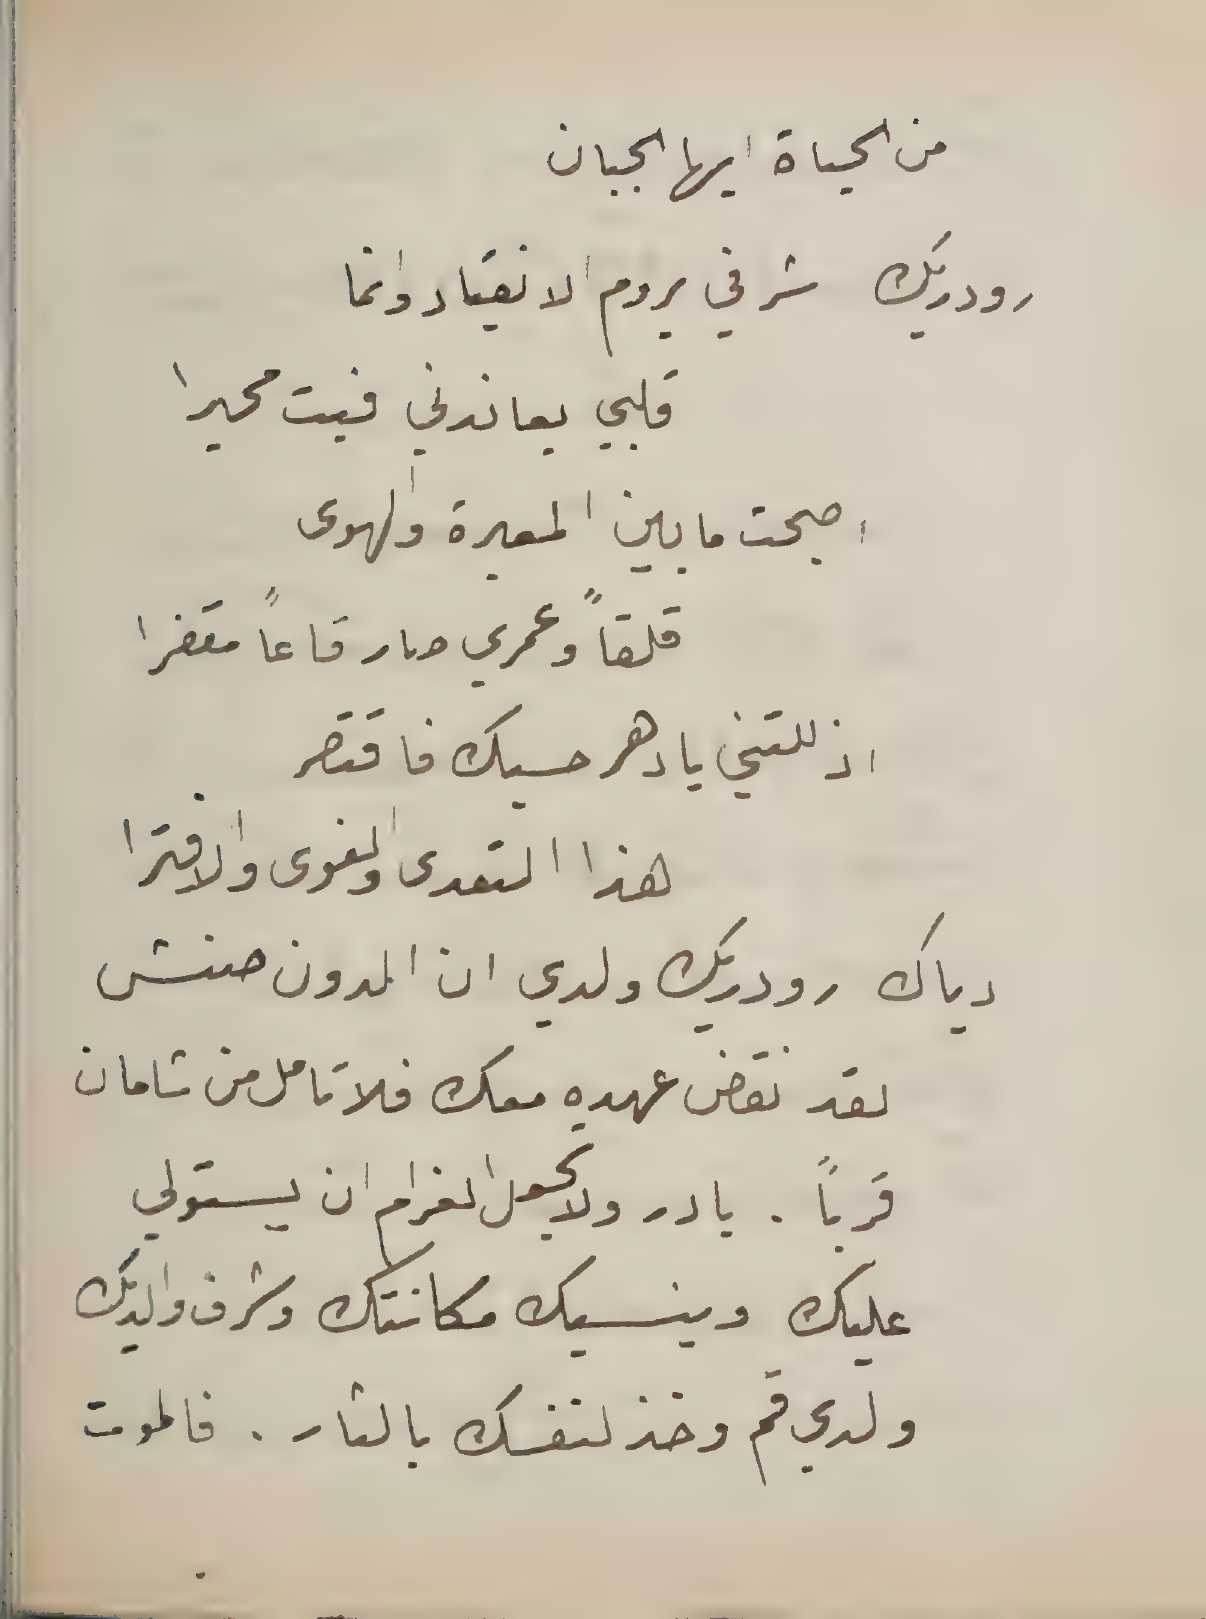 من الحياة ايها الجبان
رودريك شرفي يروم الانقياد وانما
قلبي يعاندني فبت محيرا
اصبحت ما بين المعيرة والهوى
قلقاً وعمري صار قاعاً مقفرا
اذللتني يا دهر حسبك فاقتصر
هذا التعدى والغوى والافترا
دياك رودريك ولدي ان الدون صنش
لقد نقض عهده معك فلا تامل من شامان
قرباً . بادر ولا تجعل الغرام ان يستولي
عليك وينسيك مكانتك وشرف والديك
ولدي قم وخذ لنفسك بالثار . فالموت